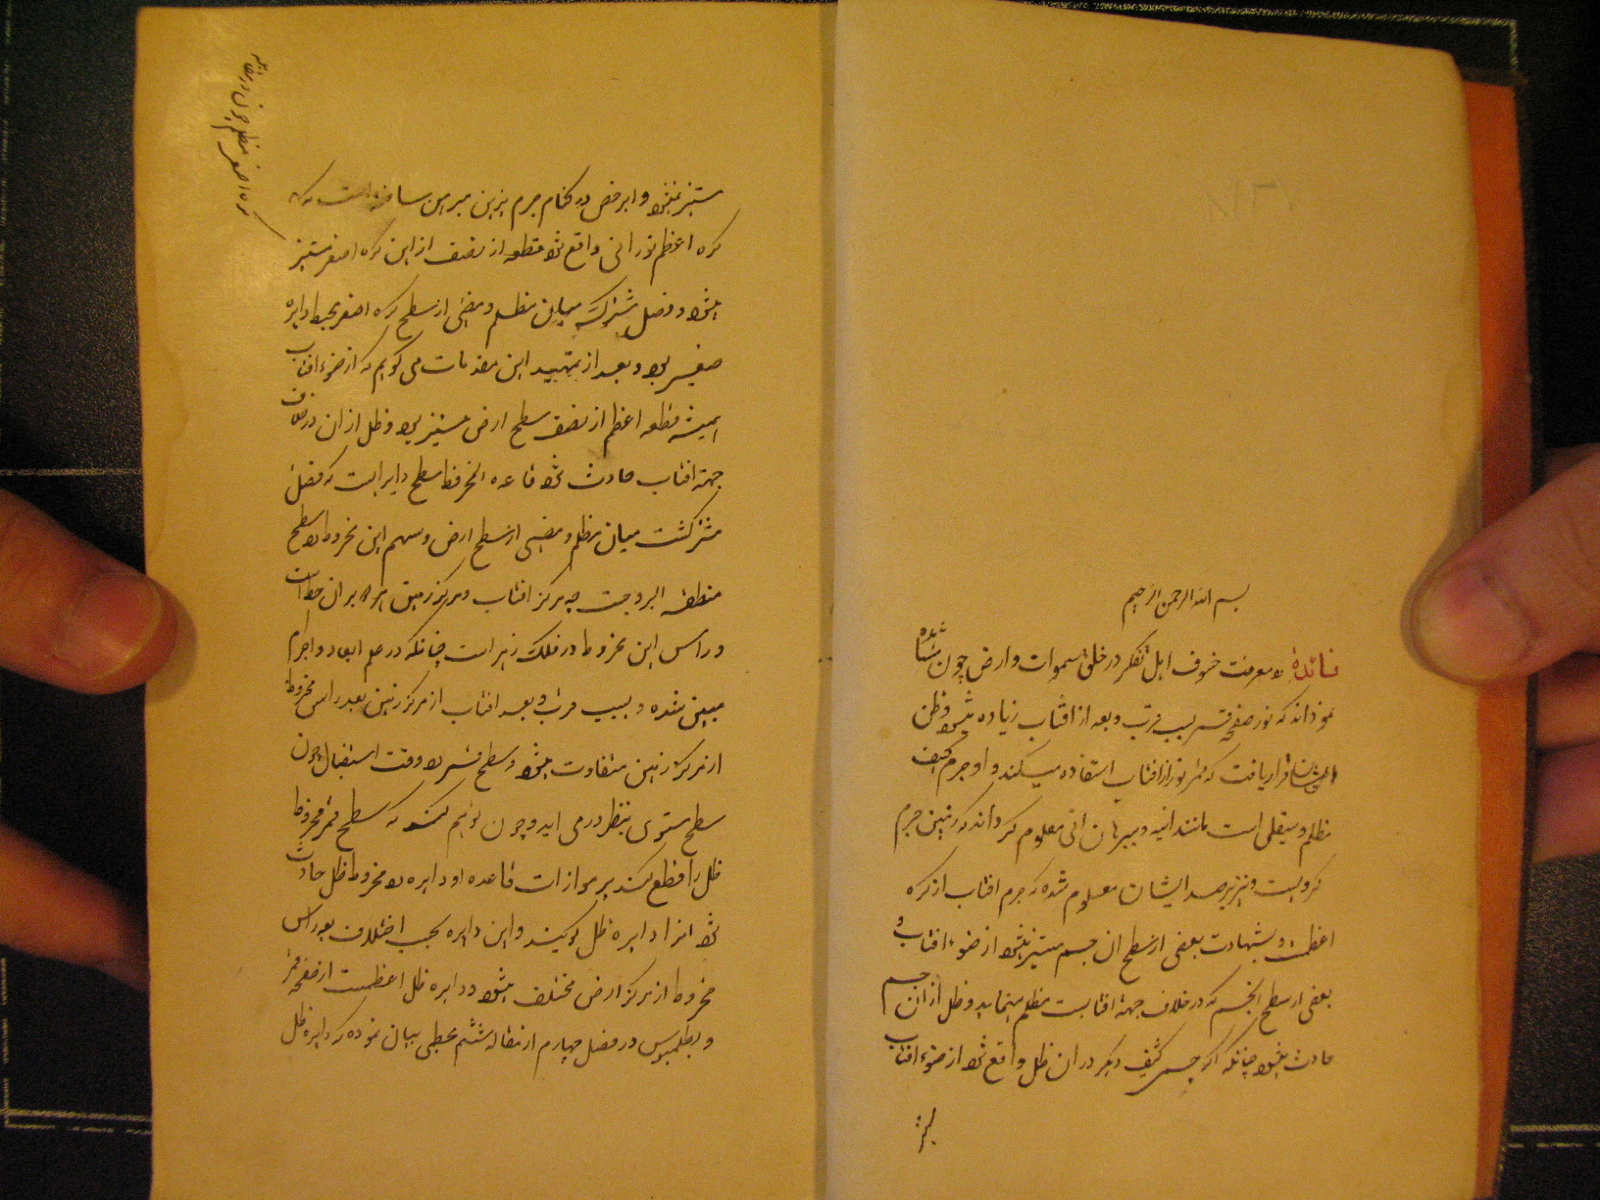 بسم الله الرحمن الرحیم
فائده در معرفت خسوف اهل تفکر در خلق سموات و ارض چون مشاهده
نموده‌اند که نور صفحه قمر بسبب قرب و بعد از افتاب زیاده میشود و ظن
ایشان قرار یافت که قمر نور از افتاب استفاده میکند و او جرم کثیف
مظلم و صیقلی است مانند اینه و ببرهان انی معلوم کرده‌اند که زمین جرم
کرویست و نیز برصد ایشان معلوم شده که جرم افتاب از کره
اعظمست و بشهادت بعضی از سطح ان جسم مستنیر میشود از ضوء افتاب و
بعضی از سطح الجسم که در خلاف جهة افتابست مظلم مینماید و ظل از ان جسم
حادث میشود چنانکه اگر جسمی کثیف دیگر در ان ظل واقع شود از ضوء افتاب
مستنیر نمیشود و ارض در جرم بزین است که
کره اعظم نورانی واقع شود قطعه از نصف از این کره اصغر مستنیر
میشود و فصل مشترک میان مظلم و مضیی از سطح کره اصغر محیط دایره
صغیر بود و بعد از تمهید این مقدمات می کویم که از ضوء افتاب
همیشه قطعه اعظم از نصف سطح ارض مستنیر بود و ظل از ان در خلاف
جهة افتاب حادث شود قاعده المخروط سطح دایرایست که فصل
مشترکست میان مظلم و مضیی از سطح ارض و سهم این مخروط در سطح
منطقه البروجست چه مرکز افتاب و مرکز زمین بران
و راس این مخروط در فلک زهر است چنانکه در علم ابعاد و اجرام
مبین شده و بسبب قرب و بعد افتاب از مرکز زمین بعد راس مخروط
از مرکز زمین متفاوت میشود و سطح قمر در وقت استقبال چون
سطح مستوی بنظر در می اید و چون توهم کنند که سطح قمر مخروط
ظل را قطع کند بر موازات قاعده او دایره در مخروط ظل حادث
شود انرا دایره ظل کویند و این دایره بحسب اختلاف بعد راس
مخروط از مرکز ارض مختلف میشود و دایره ظل اعظمست از صفحه قمر
و بطلمیوس در فصل چهارم از مقاله ششم مجسطی بیان نموده که دایره ظل
کره اصغر مظلم چون در مقابله